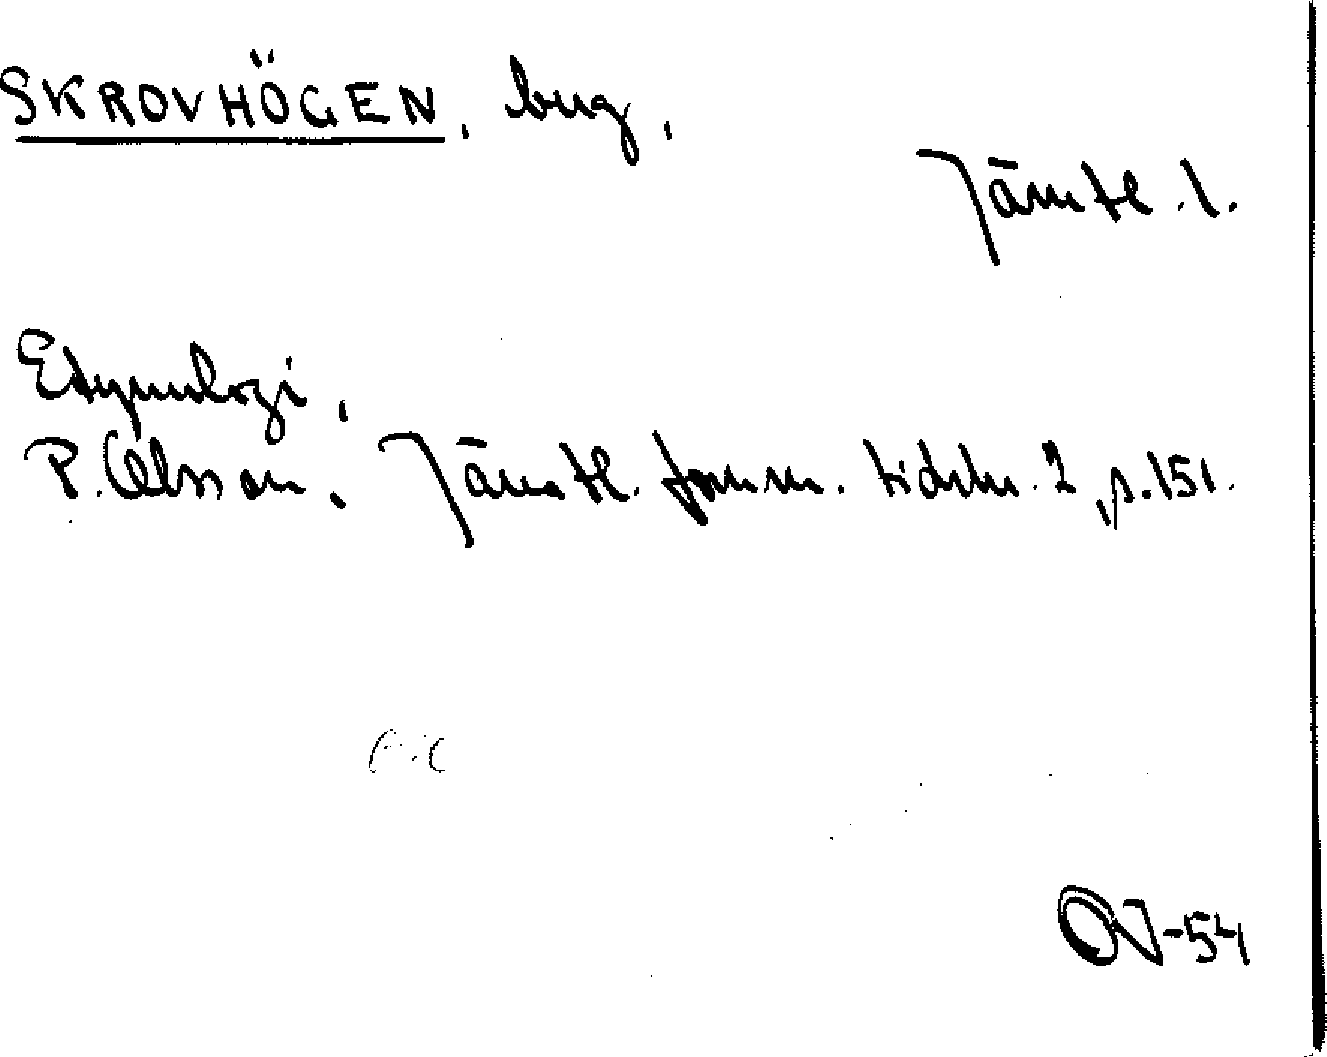 SKROVHÖGEN, berg,
Jämtl. l.
Etymologi,
P. Olsson, Jämtl. fornm. tidskr. 2, s. 151.
OJ-54